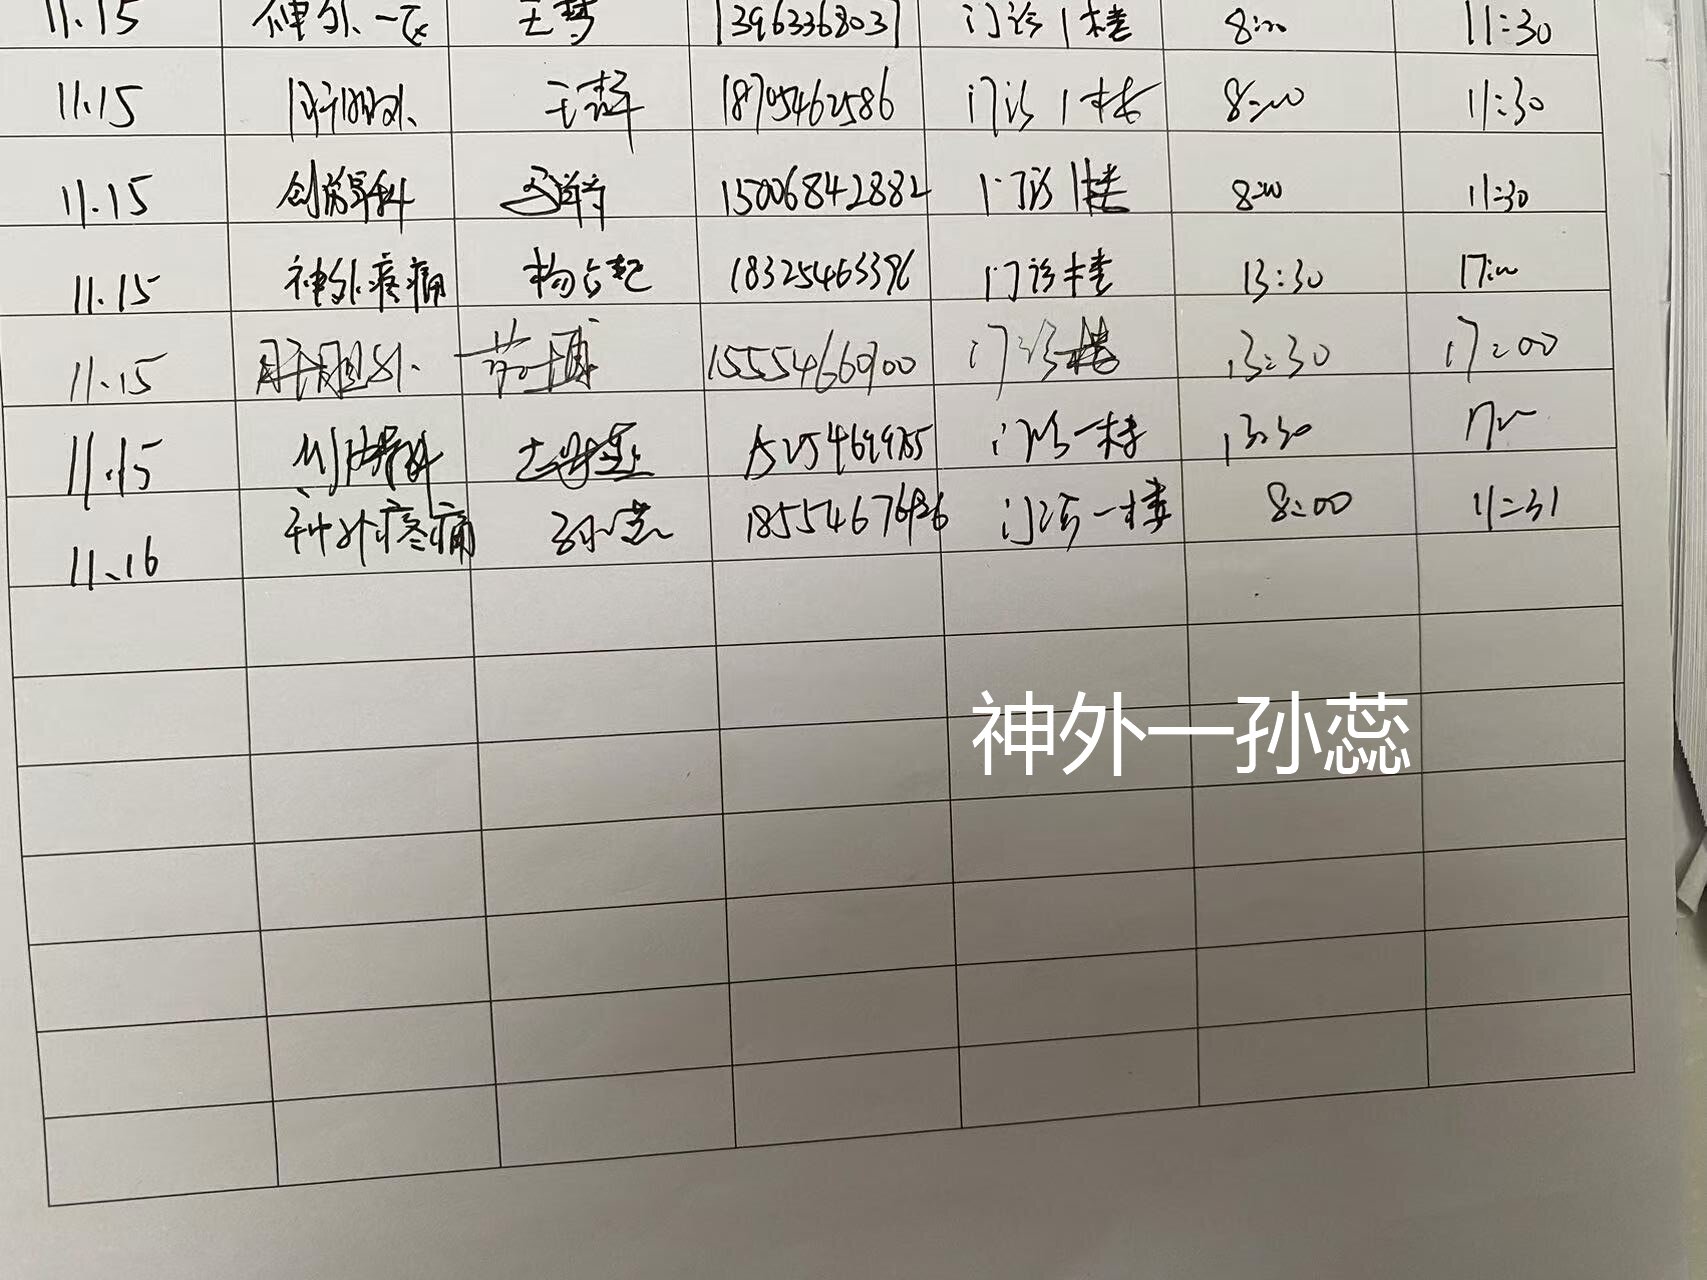 11.15 神外一区 王梦 13963368031 门诊1楼 8:00 11:30
11.15 肝胆外 18795462586 门诊1楼 8:00 11:30
11.15 创伤骨科 15006842882 门诊1楼 8:00 11:30
11.15 神外疼痛 18325463396 门诊楼 13:30 17:00
11.15 肝胆外 15554660900 门诊楼 13:30 17:00
11.15 门诊一楼 13:30 17:00
11.16 神外疼痛 孙蕊 门诊一楼 8:00 11:31
神外一孙蕊